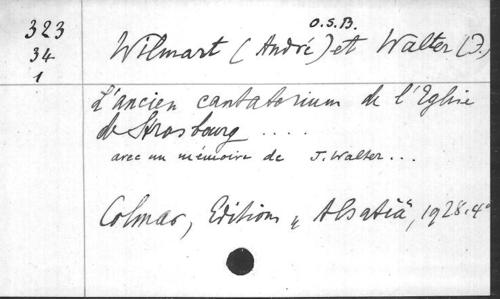 323
34
1
O.S.B.
Wilmart (André) et Walter (J.)
L'ancien cantatorium de l'Eglise
de Strasbourg ....
avec un mémoire de J. Walter ...
Colmar, Editions "Alsatia", 1928. 4°